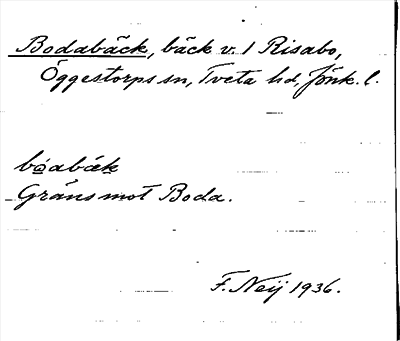 Bodabäck, bäck v. l Risabo,
Öggestorps sn, Tveta hd, Jönk. l.
bo̲abäk
Gräns mot Boda.
F. Neij 1936.